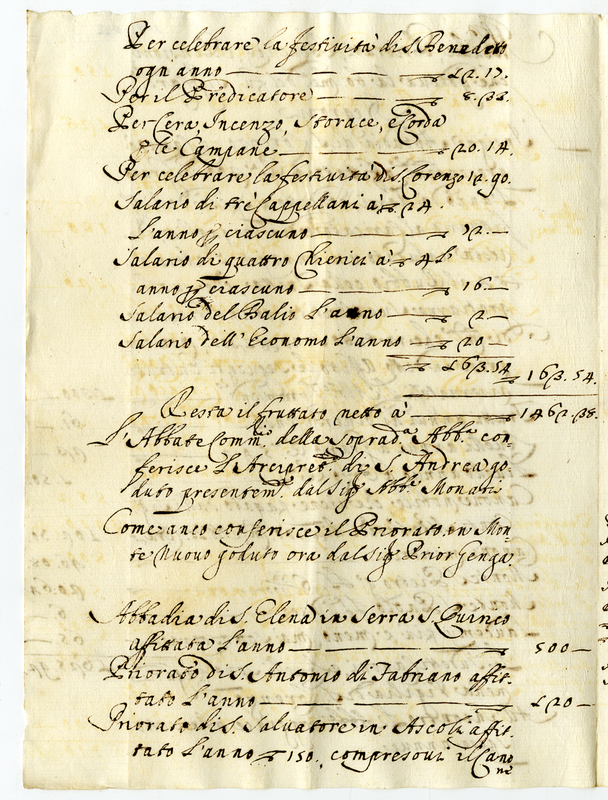 Per celebrare la festività di S. Benedetto
ogni anno — — — — 12. 17.
Per il Predicatore — — 8.
Per Cera, Incenzo, Storace, e Corda
p le Campane — — — 20. 14.
Per celebrare la festività di S. Lorenzo 12. 90.
Salario di trè Cappellani à 24.
l'anno p ciascuno — — 72. —
Salario di quattro Chierici à 4 l'
anno p ciascuno — — 16. —
Salario del Balio l'anno — — 2. —
Salario dell'Economo l'anno — 20 —
163. 54
163. 54.
Resta il fruttato netto à — 1462. 38.
L'Abbate Comm.e della soprad.a Abb.a con-
ferisce l'Arcipret. di S. Andrea go-
duto presentem.e dal Sig. Abb.e Monati
Come anco conferisce il Priorato in Mon-
te Nuovo goduto ora dal Sig. Prior Genga
Abbadia di S. Elena in Serra S. Quirico
affittata l'anno — — — 500 —
Priorato di S. Antonio di Fabriano affit-
tato l'anno — — — 120 —
Priorato di S. Salvatore in Ascoli affit-
tato l'anno 150. compresovi il Cano
ne